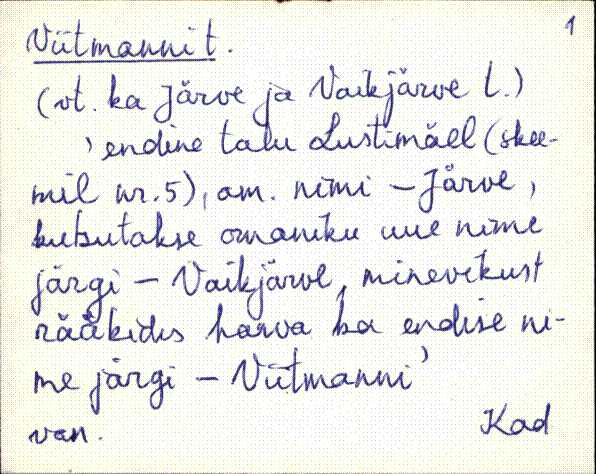 1
Viitmanni t.
(vt. ka Järve ja Vaikjärve t.)
' endine talu Lustimäel (skee-
mil nr. 5), am. nimi – Järve,
kutsutakse omaniku uue nime
järgi – Vaikjärve, minevikust
rääkides harva ka endise ni-
me järgi – Viitmanni'
van. Kad